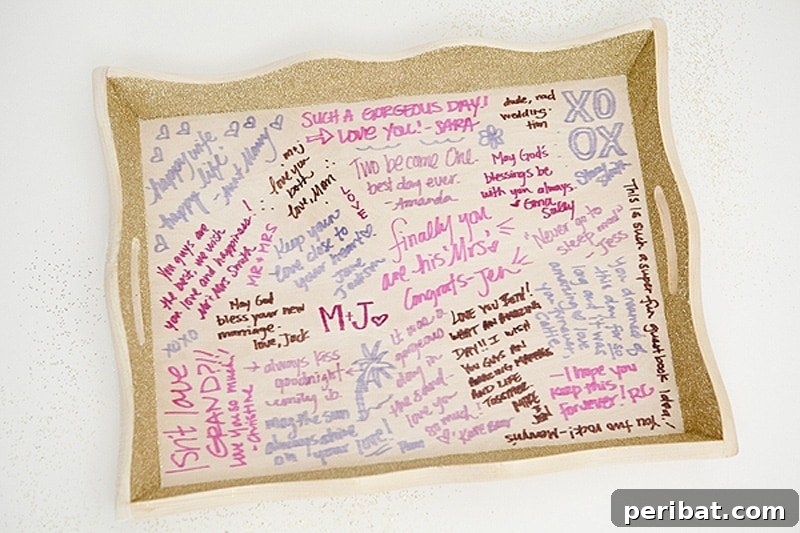 SUCH A GORGEOUS DAY!
LOVE YOU! - SARA
dude, rad
wedding
XO
XO
happy wife
happy life!
- aunt Mary
m+j
love you
both
love, Mom
LOVE
Two become One
best day ever.
- Amanda
May God's
blessings be
with you always
Sally
You guys are
the best, we wish
you love and happiness!
Mr. Mrs. Smith
MR + MRS
Keep your
love close to
your heart
Jane
finally you
are his "Mrs"
Congrats - Jen
"Never go to
sleep mad"
- Jess
This is such a super fun guestbook idea!!
May God
bless your new
marriage -
love, Jack
M+J
xoxo
Isn't love
GRAND?!!
luv you so much!
- Christine
always kiss
goodnight
may the sun
always shine
your love!
it was a
gorgeous
day in
the sand.
love you
so much!
LOVE YOU BOTH!
WHAT AN AMAZING
DAY!! I WISH
YOU GUYS AN
AMAZING MARRIAGE
AND LIFE
TOGETHER
MIKE
this day for so
long and it was
- I hope you
keep this
forever! RG
You two rock! -
peribat.com